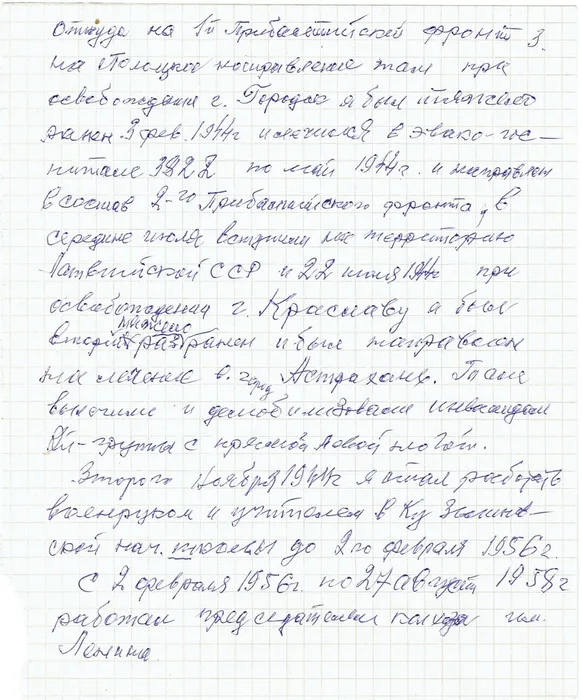 Откуда на 1й Прибалтийский фронт з.
на Полоцкое направление там при
освобождении г. Городок я был тяжело
ранен 3 фев. 1944г и лечился в эвако-гос-
питале 3922 по май 1944г. и направлен
в состав 2-го Прибалтийского фронта, в
середине июля вступили на территорию
Латвийской ССР и 22 июля 1944г при
освобождении г. Краславу я был
тяжело
второй раз ранен и был направлен
на лечение в город Астрахань. Там
вылечили и демобилизовали инвалидом
группы с левой ногой.
Второго ноября 1944г я стал работать
военруком и учителем в
ской нач. школы до 2го февраля 1956г.
С 2 февраля 1956г. по 27 август 1958г
работал председателем колхоза им.
Ленина.